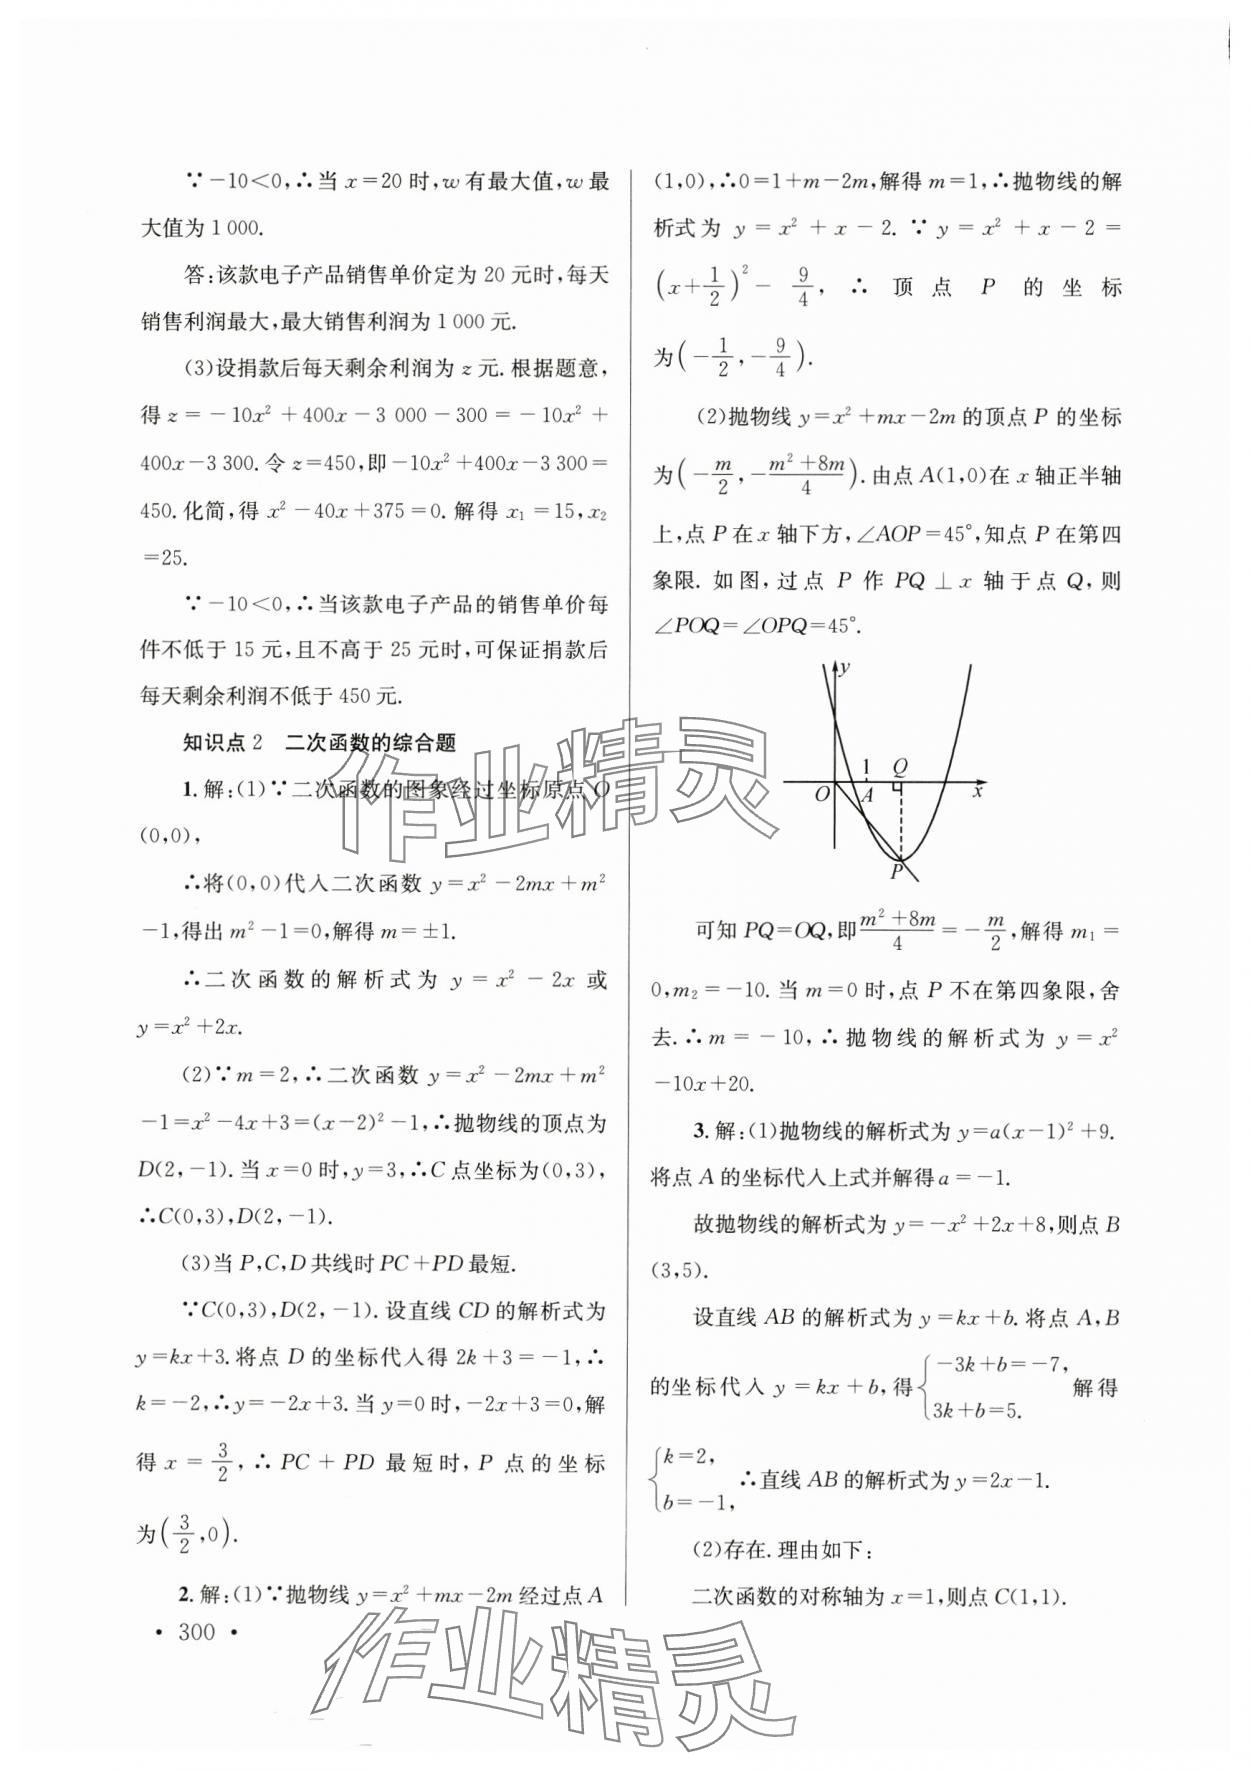 ∵-10<0,∴当 x=20 时,w 有最大值,w 最
大值为 1 000.
答:该款电子产品销售单价定为 20 元时,每天
销售利润最大,最大销售利润为 1 000 元.
(3)设捐款后每天剩余利润为 z 元.根据题意,
得 z = -10x² + 400x - 3 000 - 300 = -10x² +
400x-3 300.令 z=450,即-10x²+400x-3 300=
450.化简,得 x²-40x+375=0.解得 x₁=15,x₂
=25.
∵-10<0,∴当该款电子产品的销售单价每
件不低于 15 元,且不高于 25 元时,可保证捐款后
每天剩余利润不低于 450 元.
知识点 2 二次函数的综合题
1.解:(1)∵二次函数的图象经过坐标原点 O
(0,0),
∴将(0,0)代入二次函数 y=x²-2mx+m²
-1,得出 m²-1=0,解得 m=±1.
∴二次函数的解析式为 y = x² - 2x 或
y=x²+2x.
(2)∵m=2,∴二次函数 y=x²-2mx+m²
-1=x²-4x+3=(x-2)²-1,∴抛物线的顶点为
D(2,-1).当 x=0 时,y=3,∴C 点坐标为(0,3),
∴C(0,3),D(2,-1).
(3)当 P,C,D 共线时 PC+PD 最短.
∵C(0,3),D(2,-1).设直线 CD 的解析式为
y=kx+3.将点 D 的坐标代入得 2k+3=-1,∴
k=-2,∴y=-2x+3.当 y=0 时,-2x+3=0,解
得 x = 3/2, ∴ PC + PD 最短时, P 点的坐标
为(3/2,0).
2.解:(1)∵抛物线 y=x²+mx-2m 经过点 A
• 300 •
(1,0),∴0=1+m-2m,解得 m=1,∴抛物线的解
析式为 y = x² + x - 2. ∵ y = x² + x - 2 =
(x+1/2)² - 9/4, ∴ 顶点 P 的坐标
为(-1/2,-9/4).
(2)抛物线 y=x²+mx-2m 的顶点 P 的坐标
为(-m/2,-(m²+8m)/4).由点 A(1,0)在 x 轴正半轴
上,点 P 在 x 轴下方,∠AOP=45°,知点 P 在第四
象限. 如图,过点 P 作 PQ ⊥ x 轴于点 Q,则
∠POQ=∠OPQ=45°.
y
1 Q
O A x
P
可知 PQ=OQ,即(m²+8m)/4=-m/2,解得 m₁=
0,m₂=-10.当 m=0 时,点 P 不在第四象限,舍
去.∴m = -10,∴抛物线的解析式为 y = x²
-10x+20.
3.解:(1)抛物线的解析式为 y=a(x-1)²+9.
将点 A 的坐标代入上式并解得 a=-1.
故抛物线的解析式为 y=-x²+2x+8,则点 B
(3,5).
设直线 AB 的解析式为 y=kx+b.将点 A,B
的坐标代入 y=kx+b,得{-3k+b=-7, 3k+b=5. 解得
{k=2, b=-1, ∴直线 AB 的解析式为 y=2x-1.
(2)存在.理由如下:
二次函数的对称轴为 x=1,则点 C(1,1).
作业精灵
作业精灵